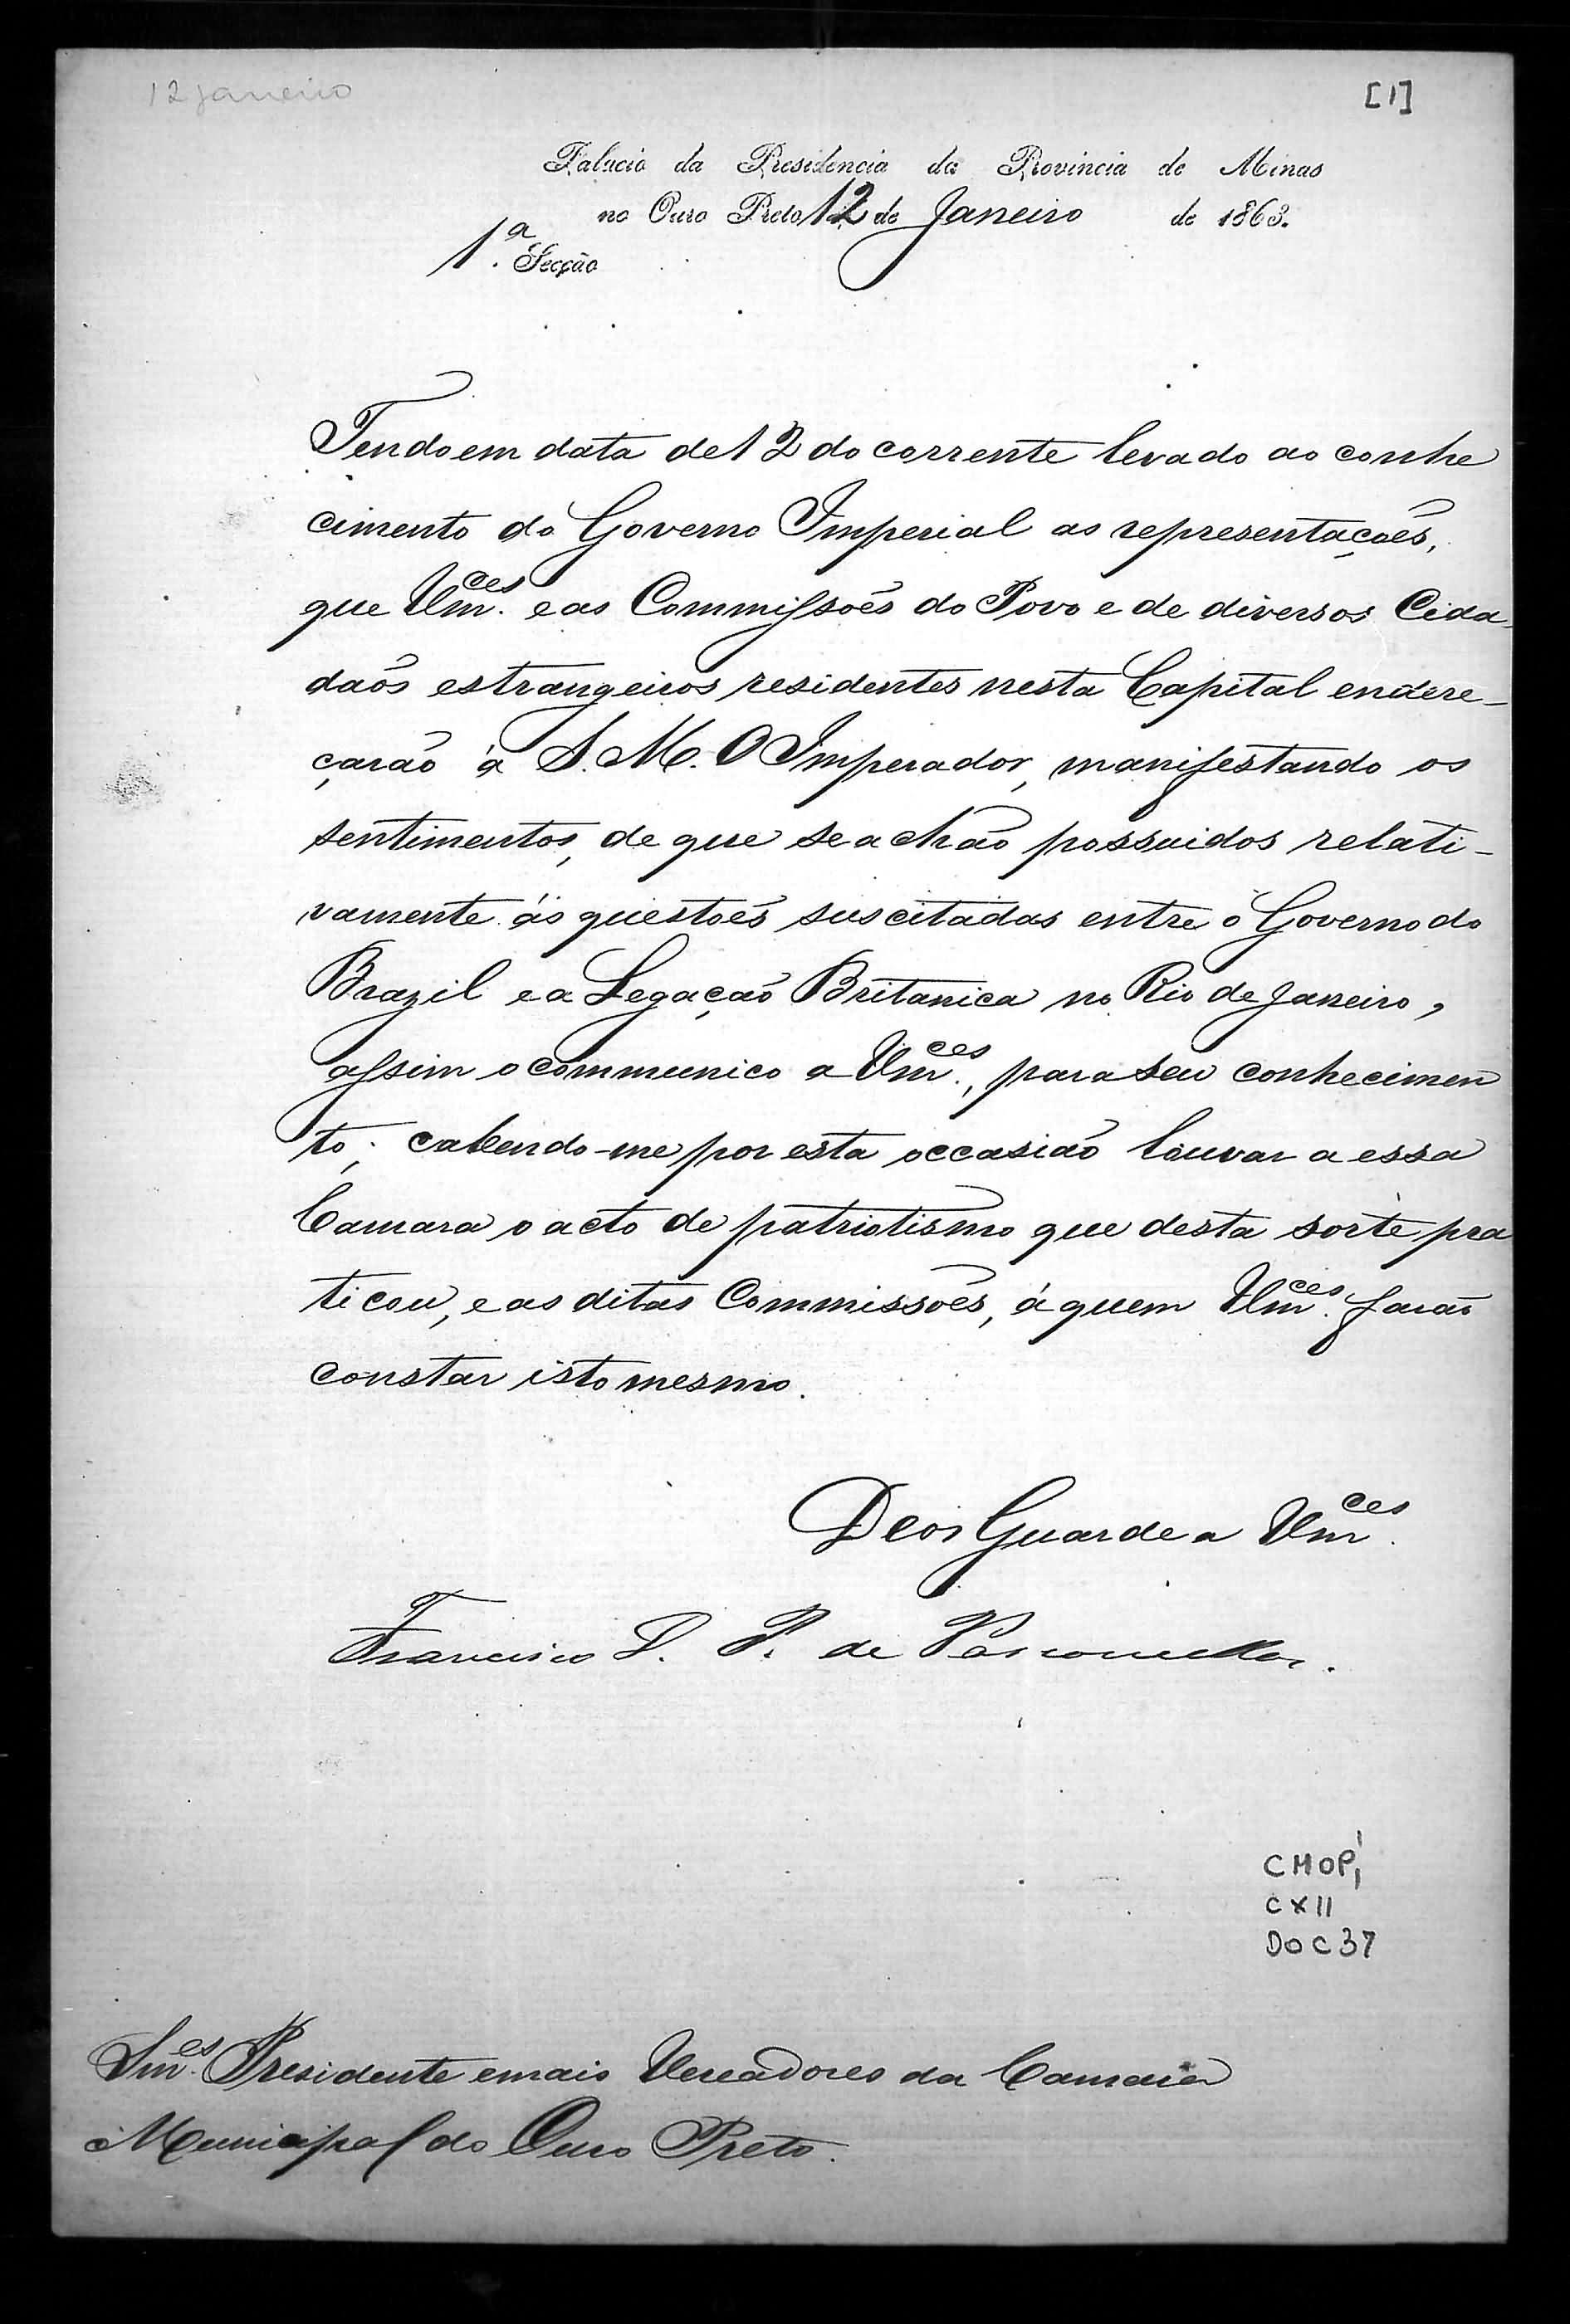 12 Janeiro
[1]
Palacio da Presidencia da Provincia de Minas
no Ouro Preto 12 de Janeiro de 1863.
1.ª Secção
Tendo em data de 12 do corrente levado ao conhe
cimento do Governo Imperial as representações,
que Vm.ces e as Commissões do Povo e de diversos Cida-
daõs estrangeiros residentes nesta Capital endere-
çaraõ á S. M. O Imperador, manifestando os
sentimentos, de que se achaõ possuidos relati-
vamente ás questoẽs suscitadas entre o Governo do
Brazil e a Legaçaõ Britanica no Rio de Janeiro,
assim o communico a Vm.ces, para seu conhecimen
to; cabendo-me por esta occasiaõ louvar a essa
Camara o acto de patriotismo que desta sorte pra
ticou, e as ditas Commissoẽs, á quem Vm.ces faraõ
constar isto mesmo.
Deos Guarde a Vm.ces
Francisco D. P. de Vasconcellos.
CMOP
CX 11
DOC 37
Snr.es Presidente e mais Vereadores da Camara
Municipal do Ouro Preto.